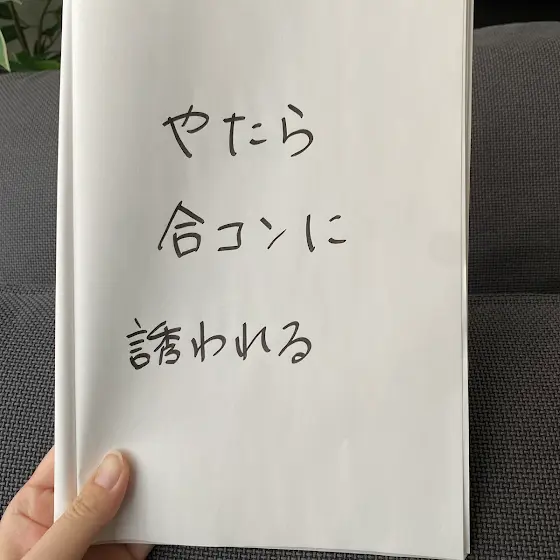 やたら
合コンに
誘われる